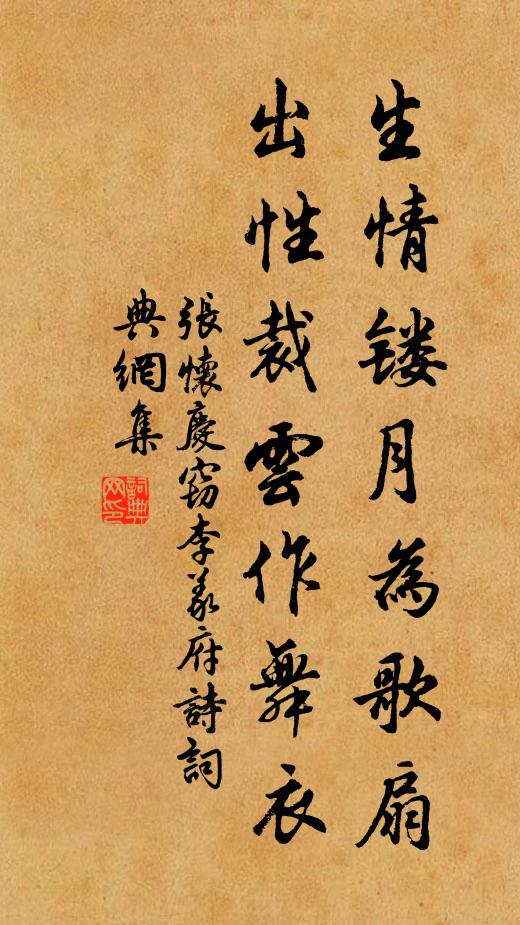 生情镂月為歌扇
出性裁雲作舞衣
張懷慶竊李義府詩詞
典網集
詞典網印